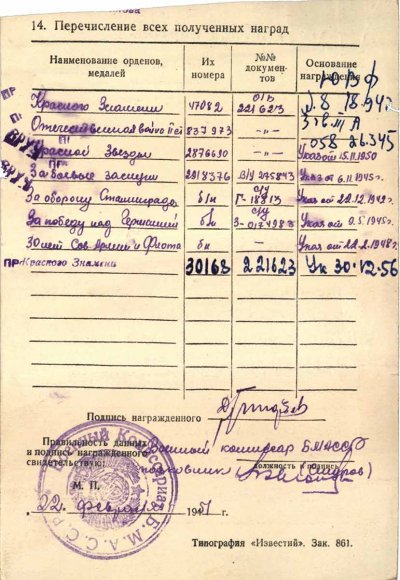 14. Перечисление всех полученных наград
Наименование орденов, медалей
Их номера
№№ документов
Основание награждения
ПР Красного Знамени 47082 о/в 221623 № 8 18.
ПР Отечественная война II ст 837973 —„— 3 А
ВРУЧ Красной Звезды 2876690 —„— Указ от 15.11.1950
ПР
ВРУЧ За боевые заслуги 2218376 В/у 245843 Указ от 6.11.1945 г.
За оборону Сталинграда б/н с/у Г-18813 Указ от 22.12.1942 г.
За победу над Германией б/н с/у З-0174987 Указ от 9.5.1945 г.
30 лет Сов Армии и Флота б/н — Указ от 22.2.1948 г.
ПР Красного Знамени 30168 221623 Ук 30.12.56
Подпись награжденного
Правильность данных и подпись награжденного свидетельствую:
Военный комиссар БМАССР
подполковник
должность и подпись
М. П.
22 февраля 1951 г.
Типография «Известий». Зак. 861.